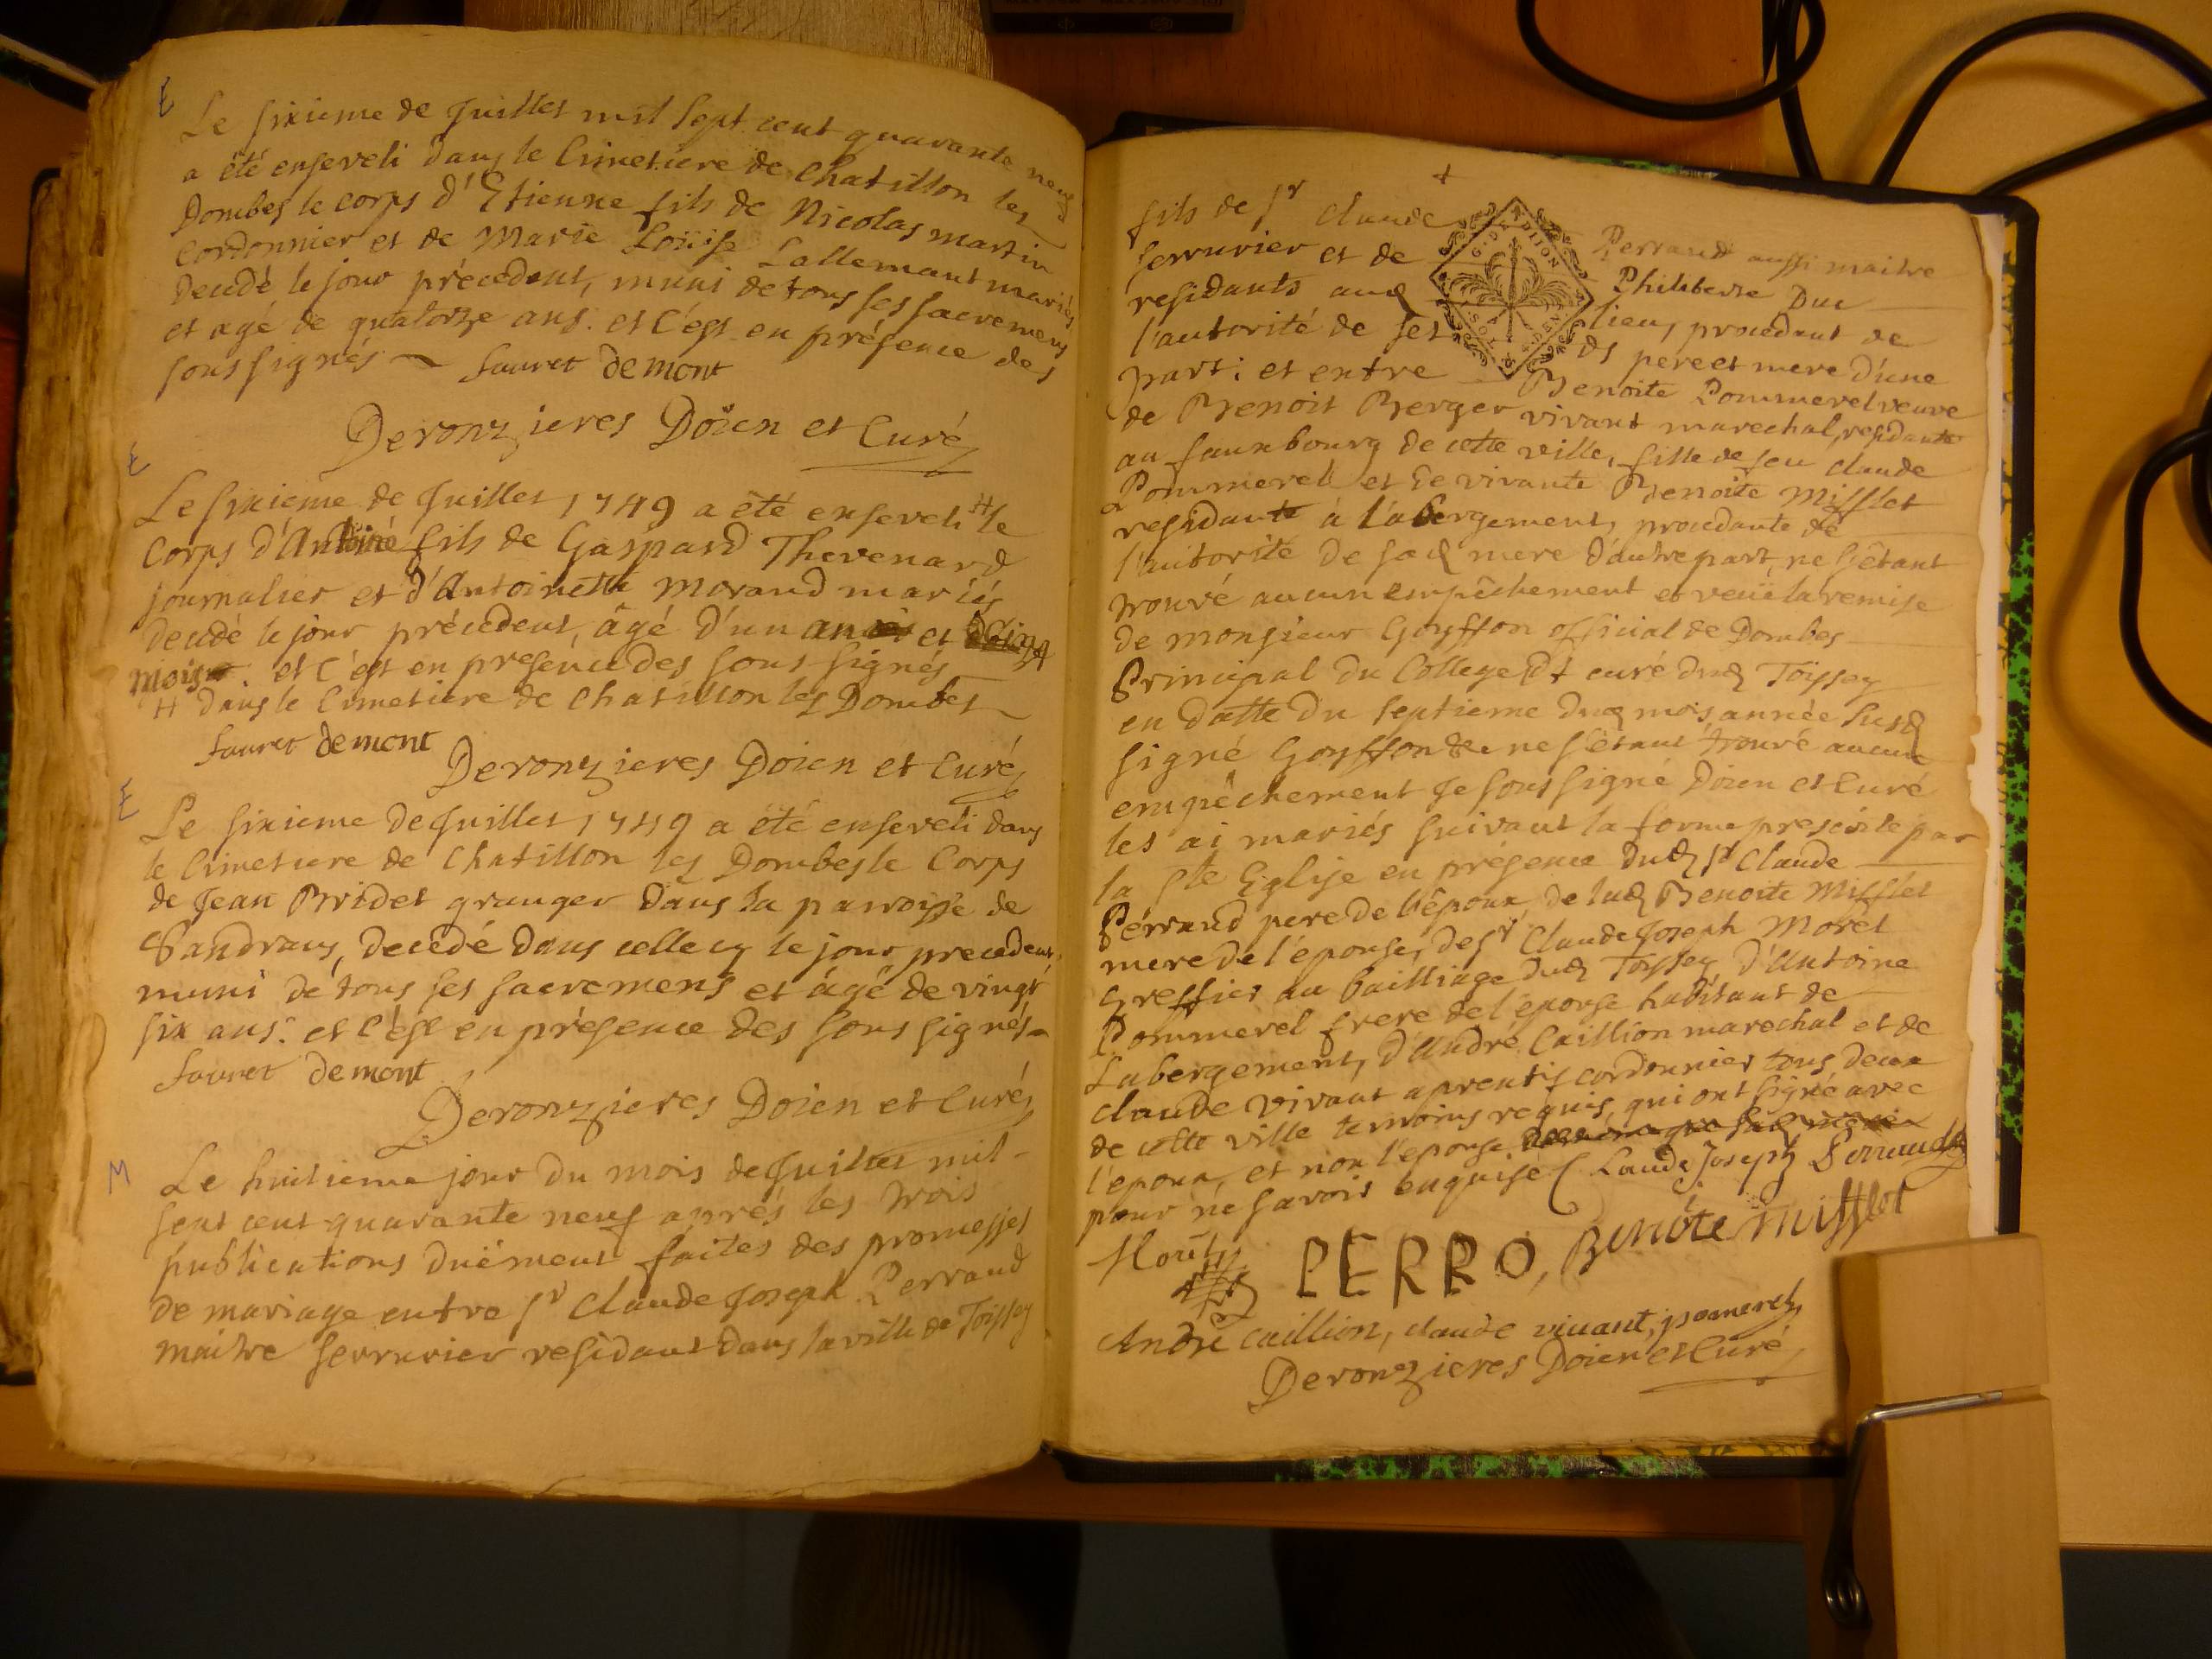 E
Le sixieme de Juillet mil sept cent quarante neuf
a été enseveli dans le Cimetiere de Chatillon les
Dombes le corps d'Etienne fils de Nicolas martin
Cordonnier et de Marie Loüise Lallemant mariés
decedé le jour précedent, muni de tous ses sacremens
et agé de quatorze ans. et c'est en présence des
soussignés
fauret demont
Deronzieres Doïen et Curé
E
Le sixieme de Juillet 1749 a été enseveli # le
Corps d'Antoine fils de Gaspard Thevenard
journalier et d'Antoinette morand mariés
decedé le jour précedent, âgé d'un an et
mois. et c'est en presence des sous signés
# dans le Cimetiere de Chatillon les Dombes
fauret demont
Deronzieres Doien et Curé
E
Le sixieme de Juillet 1749 a été enseveli dans
le Cimetiere de Chatillon les Dombes le Corps
de Jean Bridet granger dans la parroisse de
Sandrans, decedé dans celle cy le jour precedent,
muni de tous ses sacremens et âgé de vingt
six ans. et c'est en présence des sous signés
fauret demont
Deronzieres Doien et Curé
M
Le huitieme jour du mois de Juillet mil
sept cent quarante neuf aprés les trois
publications duëment faites des promesses
de mariage entre Sr Claude Joseph Perraud
maitre serrurier residant dans la ville de Toissey
fils de Sr Claude Perraud aussi maitre
serrurier et de Philiberte Duc
residants aud lieu, procedant de
l'autorité de ses ds pere et mere d'une
part; et entre Benoite Pommerel veuve
de Benoit Berger vivant marechal, residante
au fauxbourg de cette ville, fille de feu Claude
Pommerel et de vivante Benoite Mifflet
residante à l'abergement, procedante de
l'autorité de sad mere d'autre part, ne s'êtant
trouvé aucun empêchement et veüe la remise
de monsieur Goyffon official de Dombes
Principal du College et curé dud Toissey
en datte du septieme dud mois, année susd
signé Goyffon & ne s'êtant trouvé aucun
empêchement Je sous signé Doien et Curé
les ai mariés suivant la forme prescrite par
la Ste Eglise en présence dud Sr Claude
Perraud pere de l'époux, de lad Benoite Mifflet
mere de l'épouse, de Sr Claude Joseph Morel
Greffier au bailliage dud Toissey, d'Antoine
Pommerel frere de l'épouse habitant de
Labergement, d'André Caillion marechal et de
Claude Vivant aprentif cordonnier tous deux
de cette ville temoins requis, qui ont signé avec
l'epoux, et non l'epouse
pour ne savoir enquise Claude Joseph Perraud
PERRO, Benoite Mifflet
André Caillion, claude vivant, pomerel,
Deronzieres Doien et Curé